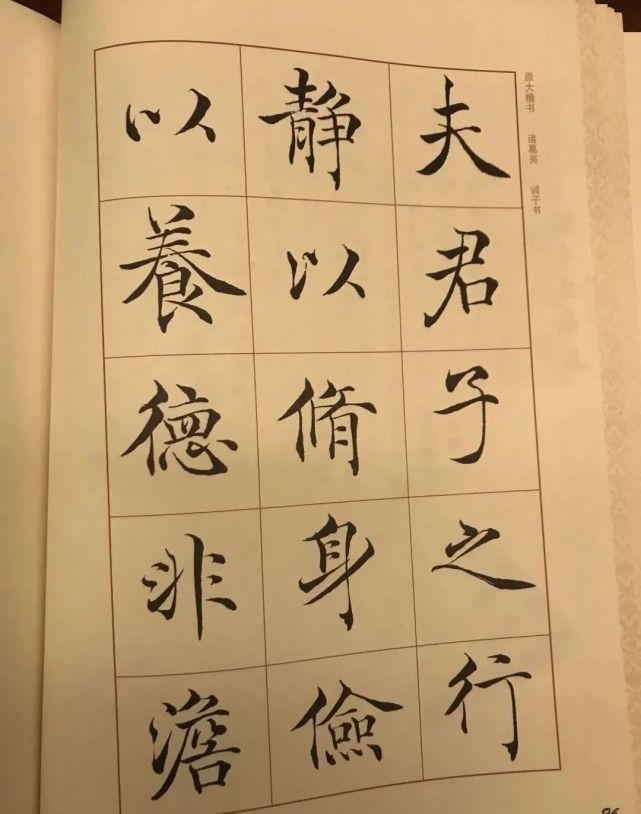 夫君子之行
静以脩身儉
以養德非澹
原大楷书 诸葛亮 诫子书